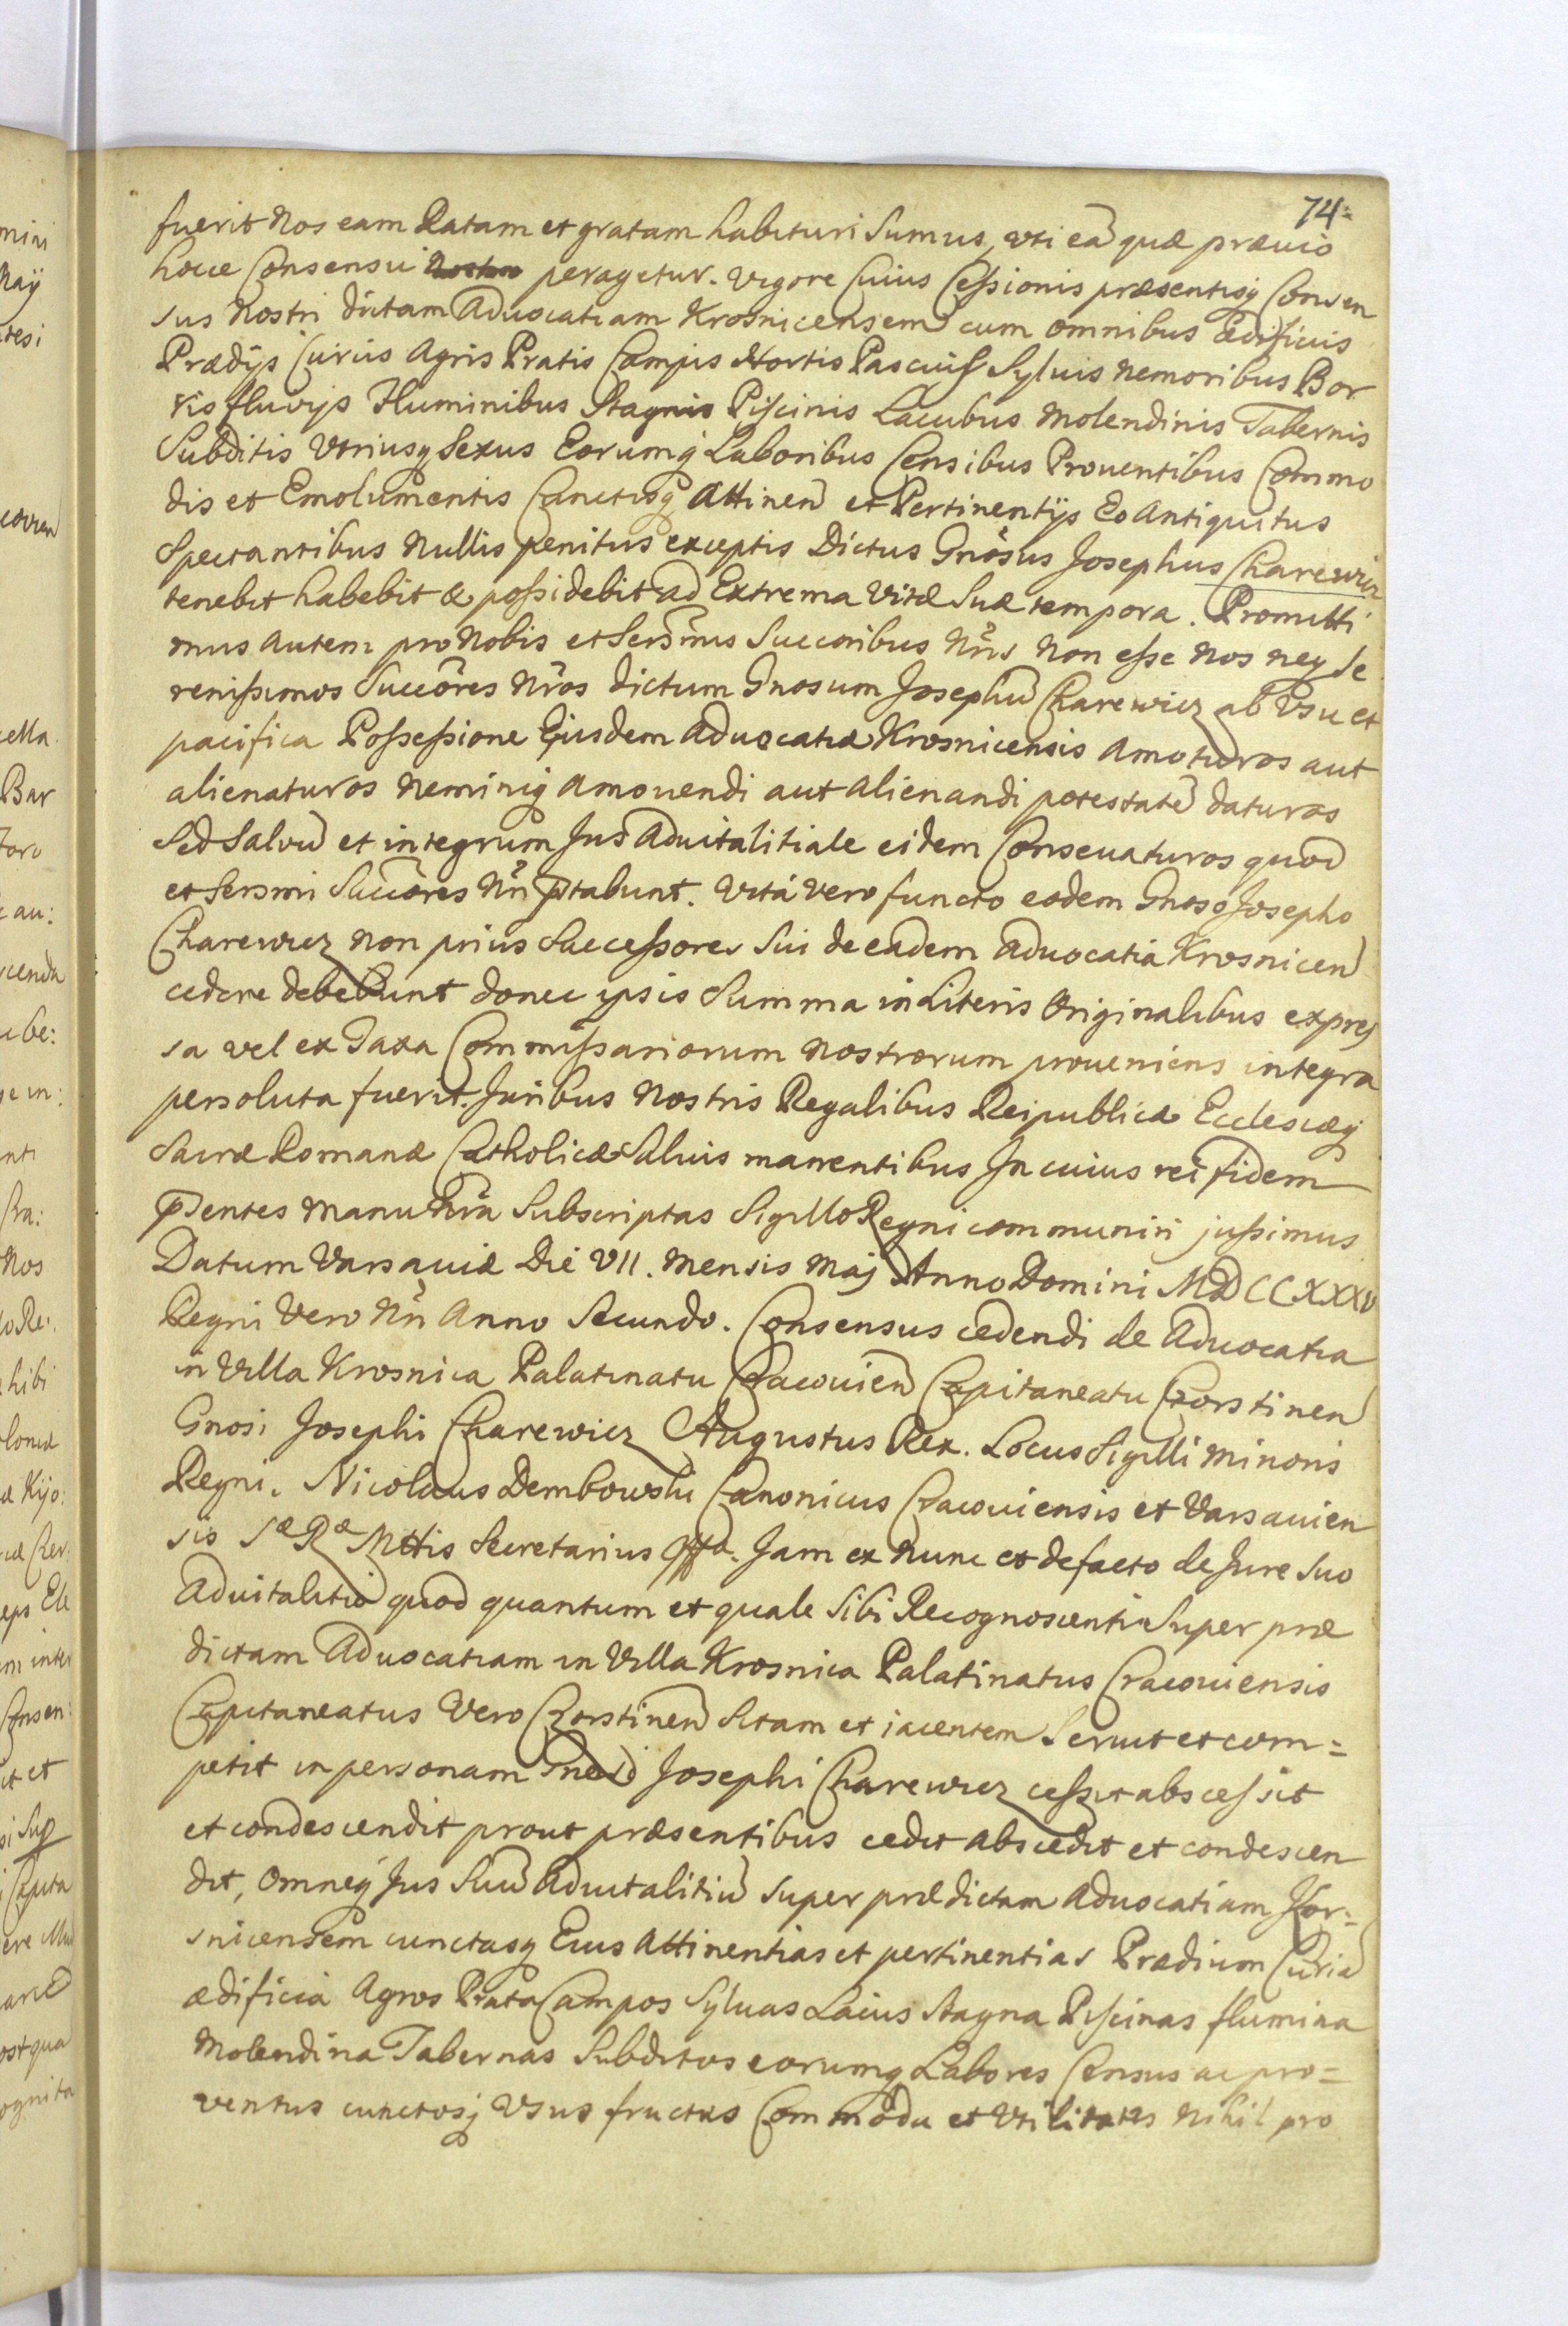 74.
fuerit Nos eam Ratam et gratam habituri Sumus, uti ea quæ prævio
hocce Consensu peragetur. Vigore Cuius Cessionis præsentisq Consen
sus Nostri dictam Advocatiam Krosnicensem cum omnibus Ædificiis
Prædijs Curiis Agris Pratis Campis Hortis Pascuis Sylvis Nemoribus Bor
ris fluvijs Fluminibus Stagnis Piscinis Lacubus Molendinis Tabernis
Subditis Utriusq Sexus Eorumq Laboribus Censibus Proventibus Commo
dis et Emolumentis Cunctisq Attinen et Pertinentijs Eo Antiquitus
Spectantibus Nullis penitus exceptis Dictus Gnosus Josephus Charewicz
tenebit habebit & possidebit ad Extrema Vitæ Suæ tempora. Promitti
mus autem pro Nobis et Sersmis Succoribus Nris Non esse Nos neq Se
renissimos Succores Nros dictum Gnosum Josephu Charewicz ab Usu et
pacifica Possessione Ejusdem Advocatiæ Krosnicensis amoturos aut
alienaturos Neminiq Amovendi aut Alienandi potestate daturos
Sed Salvu et integrum Jus Advitalitiale eidem Conservaturos quod
et Sersmi Succores Nri ptabunt. Vitá vero functo eodem Gnoso Josepho
Charewicz non prius Successores Sui de eadem Advocatia Krosnicen
cedere debebunt donec ipsis Summa in Literis Originalibus expres
sa vel ex Taxa Commissariorum Nostrorum proveniens integra
persoluta fuerit. Juribus Nostris Regalibus Reipublicæ Ecclesiæq
Sacræ Romanæ Catholicæ Salvis manentibus In cuius rei fidem
pntes Manu Nra Subscriptas Sigillo Regni communiri jussimus
Datum Varsaviæ Die VII. Mensis Maj Anno Domini MDCCXXXV
Regni Vero Nri Anno Secundo. Consensus cedendi de Advocatia
in Villa Krosnica Palatinatu Cracovien Capitaneatu Czorstinen
Gnosi Josephi Charewicz Augustus Rex. Locus Sigilli Minoris
Regni. Nicolaus Dembowski Canonicus Cracoviensis et Varsavien
sis Sæ Ræ Mttis Secretarius Jam ex Nunc et de facto de Jure suo
Advitalitio quod quantum et quale Sibi Recognoscenti Super præ
dictam Advocatiam in Villa Krosnica Palatinatus Cracoviensis
Capitaneatus Vero Czorstinen Sitam et iacentem Servit et com=
petit in personam Gnosi Josephi Charewicz cessit abscessit
et condescendit prout præsentibus cedit abscedit et condescen
dit, Omneq Jus Suu Advitalitiu super prædictam Advocatiam Kor=
snicensem cunctasq Eius Attinentias et pertinentias Prædium Curia
ædificia Agros Prata Campos Sylvas Lacus Stagna Piscinas flumina
Molendina Tabernas Subditos eorumq Labores Census ac pro=
ventus cunctosq Usus fructus Commoda et Utilitates Nihil pro